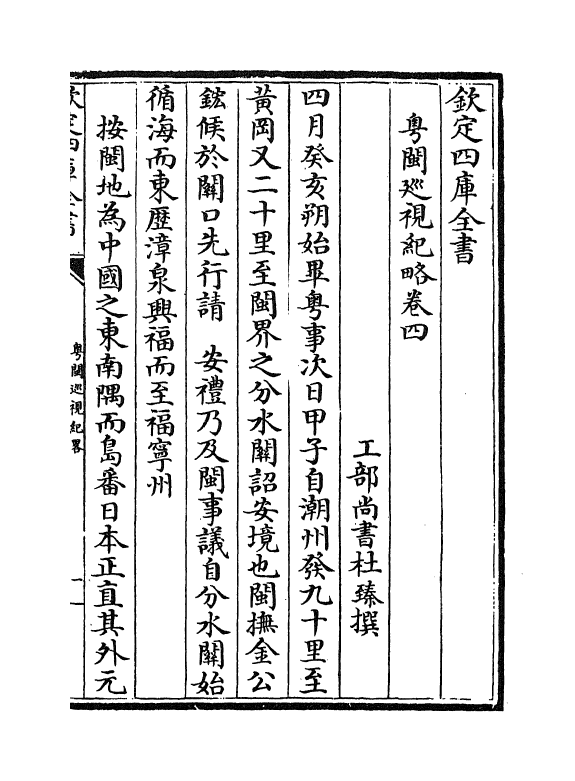 欽定四庫全書
粤閩巡視紀略卷四
工部尚書杜臻撰
四月癸亥朔始畢粤事次日甲子自潮州發九十里至
黃岡又二十里至閩界之分水關詔安境也閩撫金公
鋐候於關口先行請　安禮乃及閩事議自分水關始
循海而東歷漳泉興福而至福寧州
按閩地為中國之東南隅而島番日本正直其外元
欽定四庫全書
粤閩巡視紀畧
一